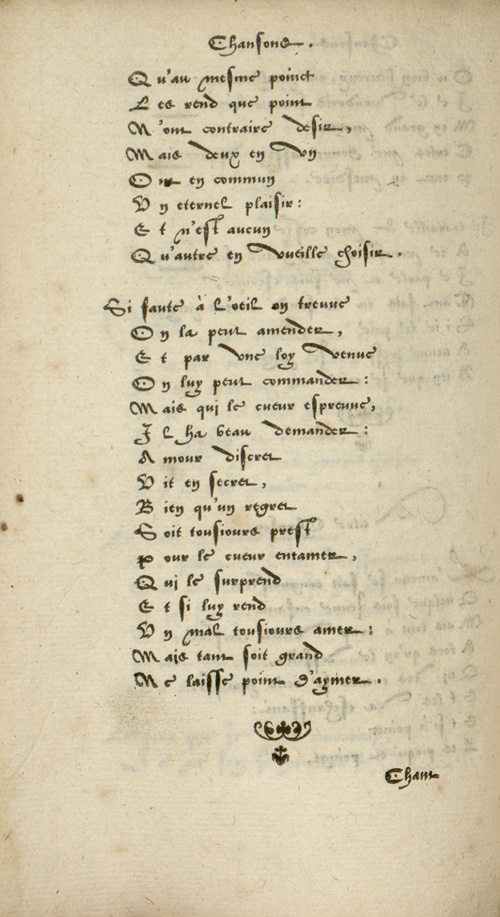 Chansons.
Qu'au mesme poinct
Les rend que point
N'ont contraire desir,
Mais deux en vn
Ont en commun
Vn eternel plaisir:
Et n'est aucun
Qu'autre en vueille choisir.
Si faute à l'oeil on treuue
On la peut amender,
Et par vne loy venue
On luy peut commander:
Mais qui le cueur espreuue,
Il ha beau demander:
Amour discret
Vit en secret,
Bien qu'un regret
Soit tousiours prest
Pour le cueur entamer,
Qui le surprend
Et si luy rend
Vn mal tousiours amer:
Mais tant soit grand
Ne laisse point d'aymer.
Chant